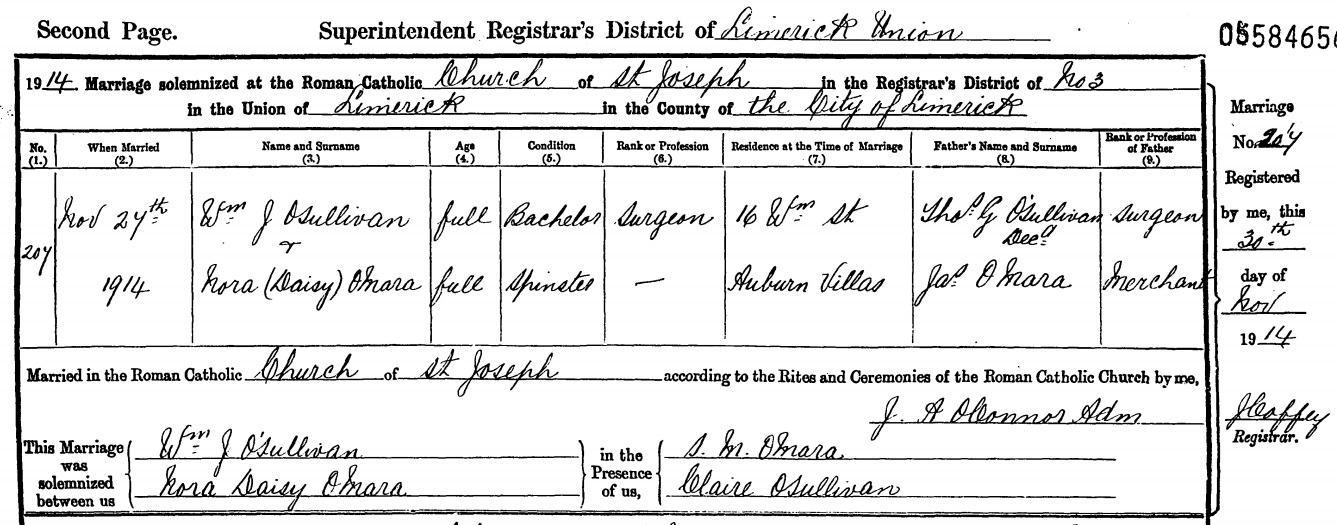 Second Page. Superintendent Registrar's District of Limerick Union
05584656
1914. Marriage solemnized at the Roman Catholic Church of St Joseph in the Registrar's District of No 3
in the Union of Limerick in the County of the City of Limerick
No. (1.) When Married (2.) Name and Surname (3.) Age (4.) Condition (5.) Rank or Profession (6.) Residence at the Time of Marriage (7.) Father's Name and Surname (8.) Rank or Profession of Father (9.)
207 Nov 27th Wm J O'Sullivan full Bachelor Surgeon 16 Wm St Thos G O'Sullivan Decd Surgeon
&
1914 Nora (Daisy) O'Mara full Spinster — Auburn Villas Jas O'Mara Merchant
Married in the Roman Catholic Church of St Joseph according to the Rites and Ceremonies of the Roman Catholic Church by me,
J. A O'Connor Adm
This Marriage was solemnized between us
Wm J O'Sullivan
Nora Daisy O'Mara
in the Presence of us,
S. M. O'Mara
Claire O'Sullivan
Marriage
No. 207
Registered
by me, this
30th
day of
Nov
1914
J Coffey
Registrar.